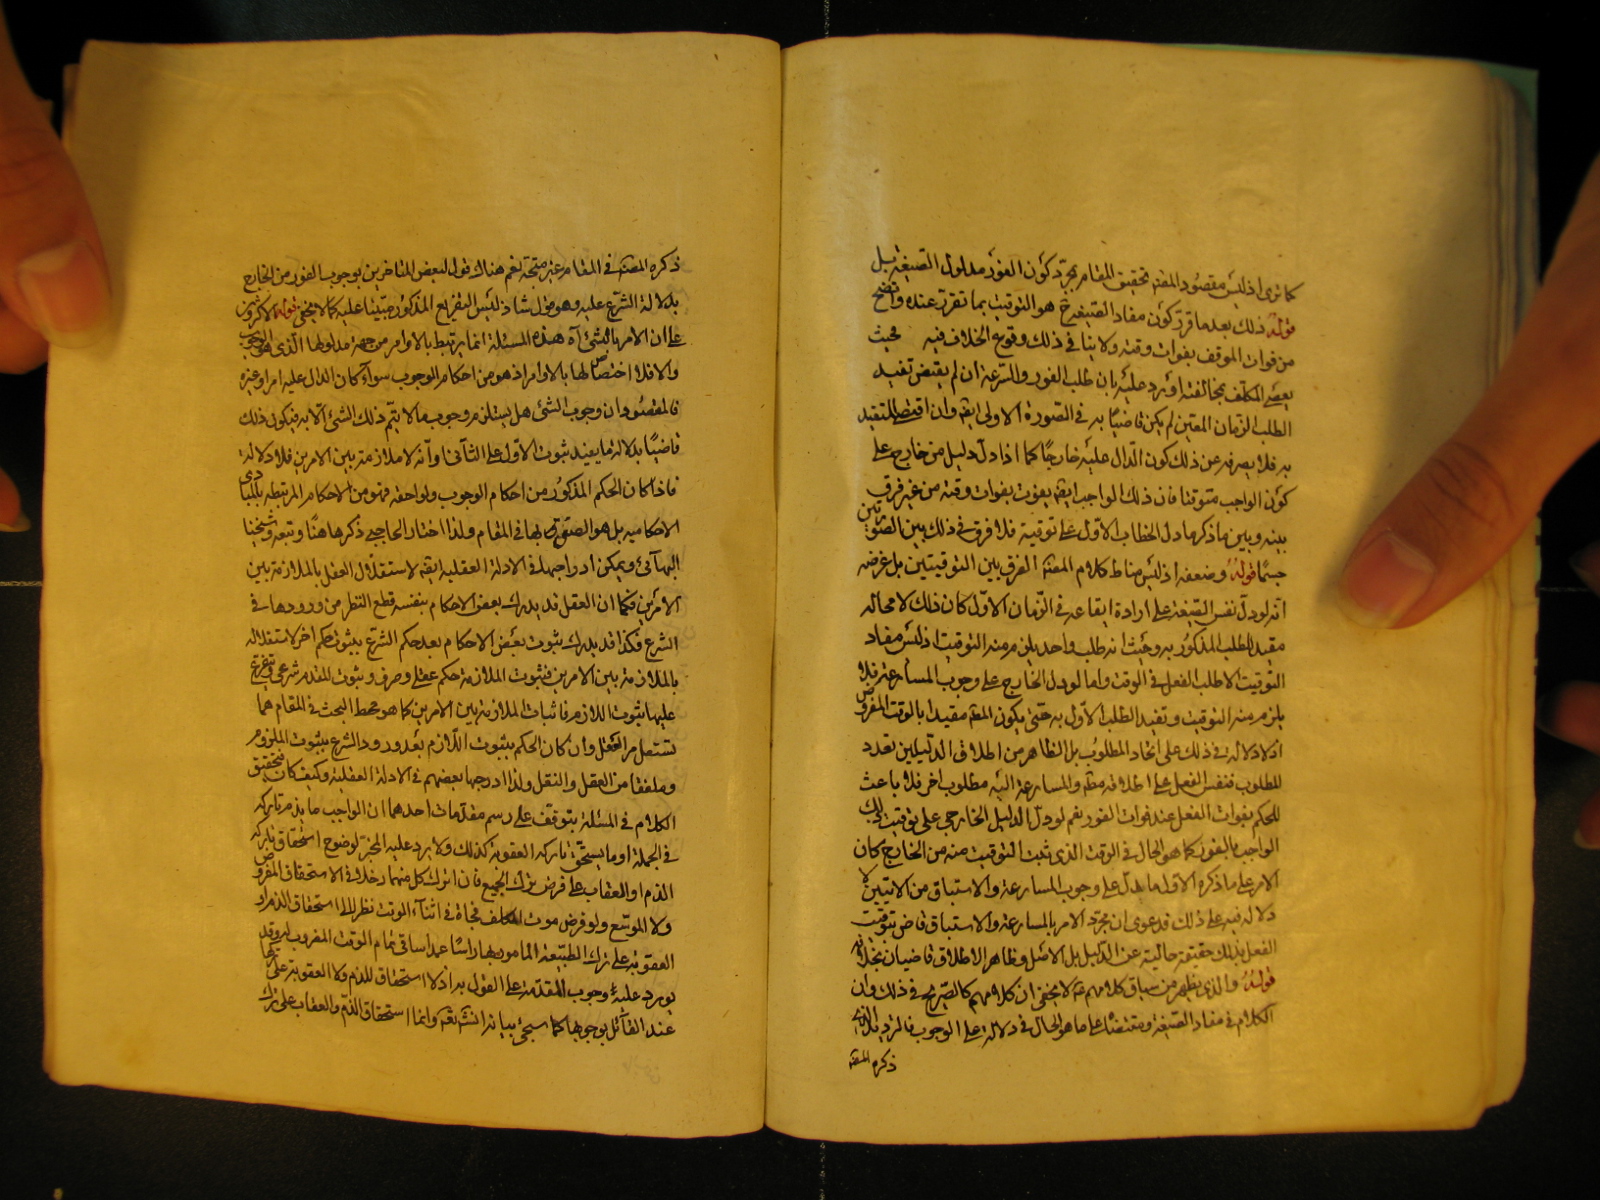 كما ترى اذ ليس مقصود المصنف تحقيق المقام بمجرد كون الفور مدلول الصيغة بل
قوله ذلك بعد ما قرر كون مفاد الصيغة ح هو التوقيت بما تقرر عنده واتضح
من فوات الموقت بفوات وقته ولا ينافي ذلك وقوع الخلاف فيه بحيث
يعصي المكلف بمخالفته اورد عليه بان طلب الفور والسرعة ان لم يقتض تقييد
الطلب الزمان المعين لم يكن قاضيا به في الصورة الاولى ايضا وان اقتضى التقييد
به فلا يصرفه عن ذلك كون الدال عليه خارجا كما اذا دل دليل من خارج على
كون الواجب موقتا فان ذلك الواجب ايضا يفوت بفوات وقته من غير فرق
بينه وبين ما ذكرها دل الخطاب الاول على توقيته فلا فرق في ذلك بين الصورتين
جسما قوله وضعفه اذ ليس مناط كلام المصنف الفرق بين التوقيتين بل غرضه
انه لو دل نفس الصيغة على ارادة ايقاعه في الزمان الاول كان ذلك لا محالة
مقيدا للطلب المذكور به وحيث انه طلب واحد يلزم منه التوقيت اذ ليس مفاد
التوقيت الا طلب الفعل في الوقت واما لو دل الخارج على وجوب المسارعة فلا
يلزم منه التوقيت وتقييد الطلب الاول به حتى يكون المقيد مقيدا بالوقت المفروض
اذ لا دلالة في ذلك على اتحاد المطلوب بل الظاهر من اطلاق الدليلين تعدد
المطلوب فنفس الفعل على اطلاقه مطلوب والمسارعة اليه مطلوب اخر فلا باعث
للحكم بفوات الفعل عند فوات الفور نعم لو دل الدليل الخارجي على توقيت ذلك
الواجب بالفور كما هو الحال في الوقت الذي ثبت التوقيت منه من الخارج كان
الامر على ما ذكره الاول ما يدل على وجوب المسارعة والاستباق من الايتين لا
دلالة فيه على ذلك فدعوى ان مجرد الامر بالمسارعة والاستباق قاض بتوقيت
الفعل بذلك حقيقة خالية عن الدليل بل الاصل وظاهر الاطلاق قاضيان بخلافه
قوله والذي يظهر من سياق كلامهم لا يخفى ان كلامهم كالصريح في ذلك وان
الكلام في مفاد الصيغة ومقتضاها على ما هو الحال في دلالته على الوجوب فالترديد الذي
ذكره المصنف
ذكره المصنف في المقام غير متجه نعم هناك قول لبعض المتاخرين بوجوب الفور من الخارج
بدلالة الشرع عليه وهو قول شاذ ليس التفريع المذكور مبنيا عليه كما لا يخفى قوله الاكثرون
على ان الامر بالشئ آه هذه المسئلة انما يرتبط بالاوامر من جهة مدلولها الذي هو الوجوب
والا فلا اختصاص لها بالاوامر اذ هو من احكام الوجوب سواء كان الدال عليه امرا وغيره
فالمقصود ان وجوب الشئ هل يستلزم وجوب ما لا يتم ذلك الشئ الا به فيكون ذلك
قاضيا بدلالة ما يفيد ثبوت الاول على الثاني وانه لا ملازمة بين الامرين فلا دلالة
فاذا كان الحكم المذكور من احكام الوجوب ولواحقه فهو من الاحكام المرتبطة بالمبادي
الاحكامية بل هو المتصدي لها في المقام ولذا اختار الحاجبي ذكرها هنا وتبعه وشيخنا
البهائي ويمكن ادراجها في الادلة العقلية ايضا لاستقلال العقل بالملازمة بين
الامرين فكما ان العقل قد يدرك بعض الاحكام بنفسه قطع النظر من ورودها في
الشرع فكذا قد يدرك ثبوت بعض الاحكام بعد حكم الشرع بثبوت حكم اخر لاستقلاله
بالملازمة بين الامرين فثبوت الملازمة حكم عقلي وصرف وثبوت المقدم شرعي ويتفرع
عليها ثبوت اللازم فاثبات الملازمة بين الامرين كما هو محط البحث في المقام مما
يستقل به العقل وان كان الحكم بثبوت اللازم بعد ورود الشرع بثبوت الملزوم
وملفقا من العقل والنقل ولذا ادرجها بعضهم في الادلة العقلية وكيف كان فتحقيق
الكلام في المسئلة يتوقف على رسم مقدمات احدها ان الواجب ما يذم تاركه
في الجملة او ما يستحق تاركه العقوبة كذلك ولا يرد عليه المخير لوضوح استحقاق تاركه
الذم او العقاب على فرض ترك الجميع فان لترك كل منهما دخلا في الاستحقاق المفروض
ولا الموسع ولو فرض موت المكلف فجأة في اثناء الوقت نظرا الى استحقاق الذم او
العقوبة على ترك الطبيعة المامور بها راسا عمدا ساقي تمام الوقت المضروب له وقد
يورد عليه وجوب المقدمة على القول به اذ لا استحقاق للذم ولا العقوبة على تركها
عند القائل بوجوبها كما سيجئ بيانه انشاء الله وانما استحقاق الذم والعقاب على ترك